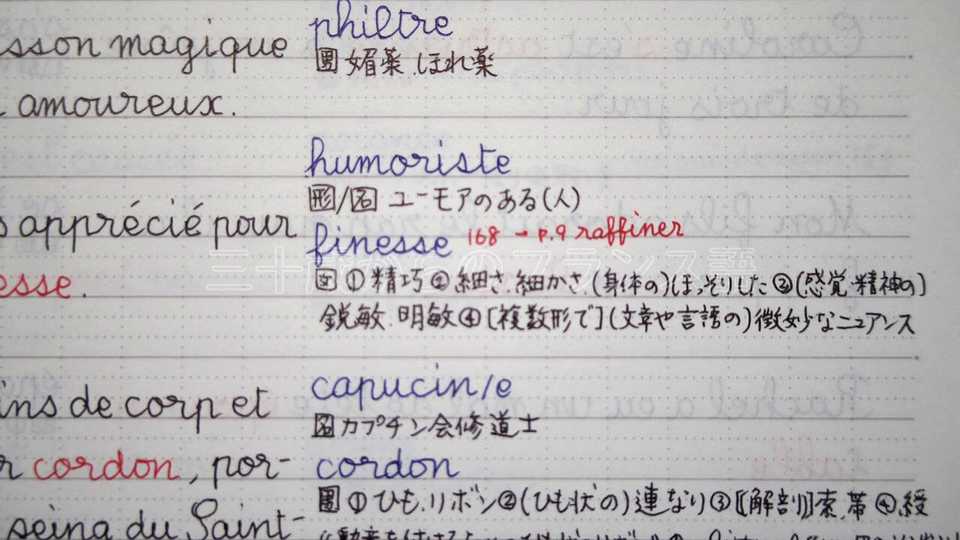 sson magique
amoureux.
s apprécié pour
esse.
ins de corp et
r cordon, por-
seina du Saint-
philtre
図 媚薬.ほれ薬
humoriste
形/名 ユーモアのある(人)
finesse 168 → p.9 raffiner
図 ①精巧 ②細さ.細かさ.(身体の)ほっそりした ③(感覚・精神の)
鋭敏.明敏 ④[複数形で](文章や言語の)微妙なニュアンス
capucin/e
名 カプチン会修道士
cordon
①ひも.リボン ②(ひも状の)連なり ③[解剖]索.帯 ④綬
三十路からのフランス語